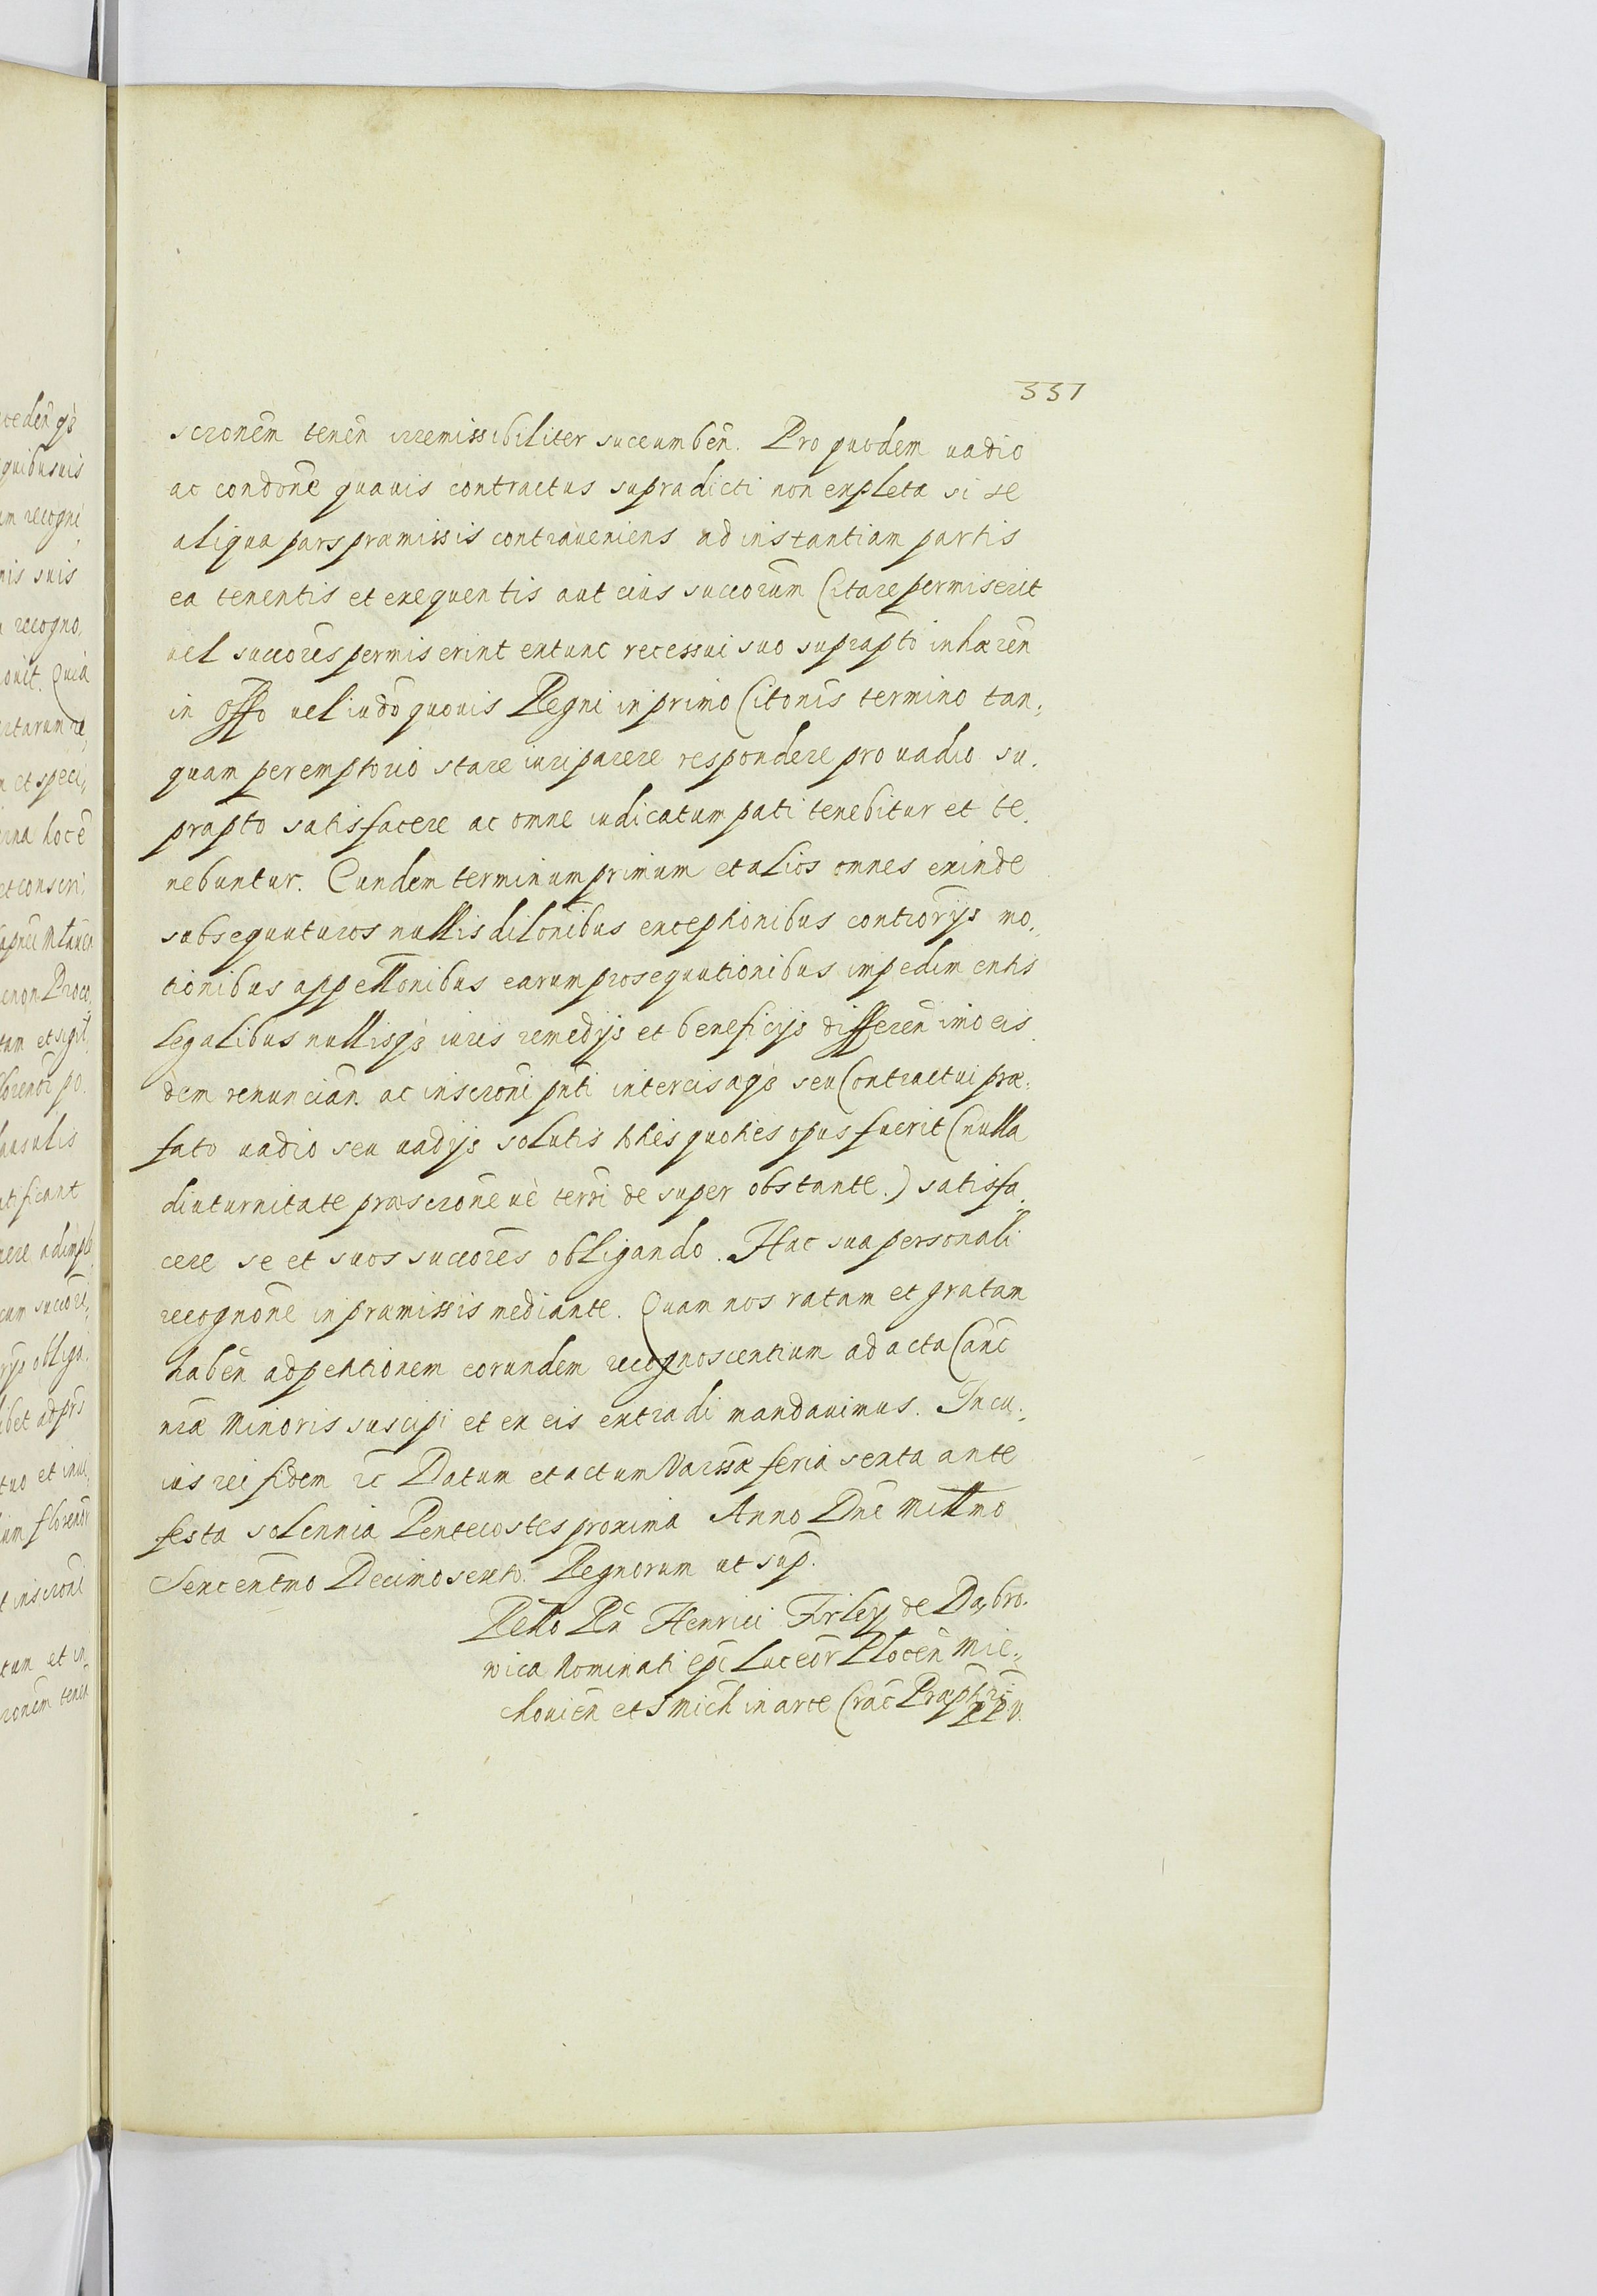 337
scronem̃ teneñ irremissibiliter succumbeñ. Pro quodem vadio
ac condone quauis contractus supradicti non expleta si se
aliqua pars præmissis contraueniens ad instantiam partis
ea tenentis et exequentis aut eius succorum Citare permiserit
uel succores permiserint extunc recessui suo suprapto inhæren
in offo uel iudo quouis Regni in primo Citonis termino tan,
quam peremptorio stare iuri parere respondere pro uadio su,
prapto satisfacere ac omne iudicatum pati tenebitur et te,
nebuntur. Eundem terminum primum et alios omnes exinde
subsequuturos nullis dilonibus exceptionibus controrijs mo,
tionibus appellonibus earum prosequutionibus impedimentis
legalibus nullisq₃ iuris remedijs et beneficijs differen imo eis,
dem renuncian ac inscroni pnti intercisaq₃ seu Contractui præ,
fato uadio seu uadijs solutis toties quoties opus fuerit (nulla
diuturnitate præscroneue terri de super obstante.) satisfa,
cere se et suos succores obligando. Hac sua personali
recognone in præmissis mediante. Quam nos ratam et gratam
haben ad petitionem eorundem recognoscentium ad acta Canc
riæ Minoris suscipi et ex eis extradi mandauimus. In cu,
ius rei fidem rc Datum et actum Varssæ feria sexta ante
festa solennia Pentecostes proxima Anno Dne Millmo
Sexcentmo Decimosexto. Regnorum ut sup.
Rello Rn Henrici Firley de Dąbro,
wica Nominati Epi Luceor Plocen Mie,
chouien et S Mich in arce Crac Præpti
R P V.